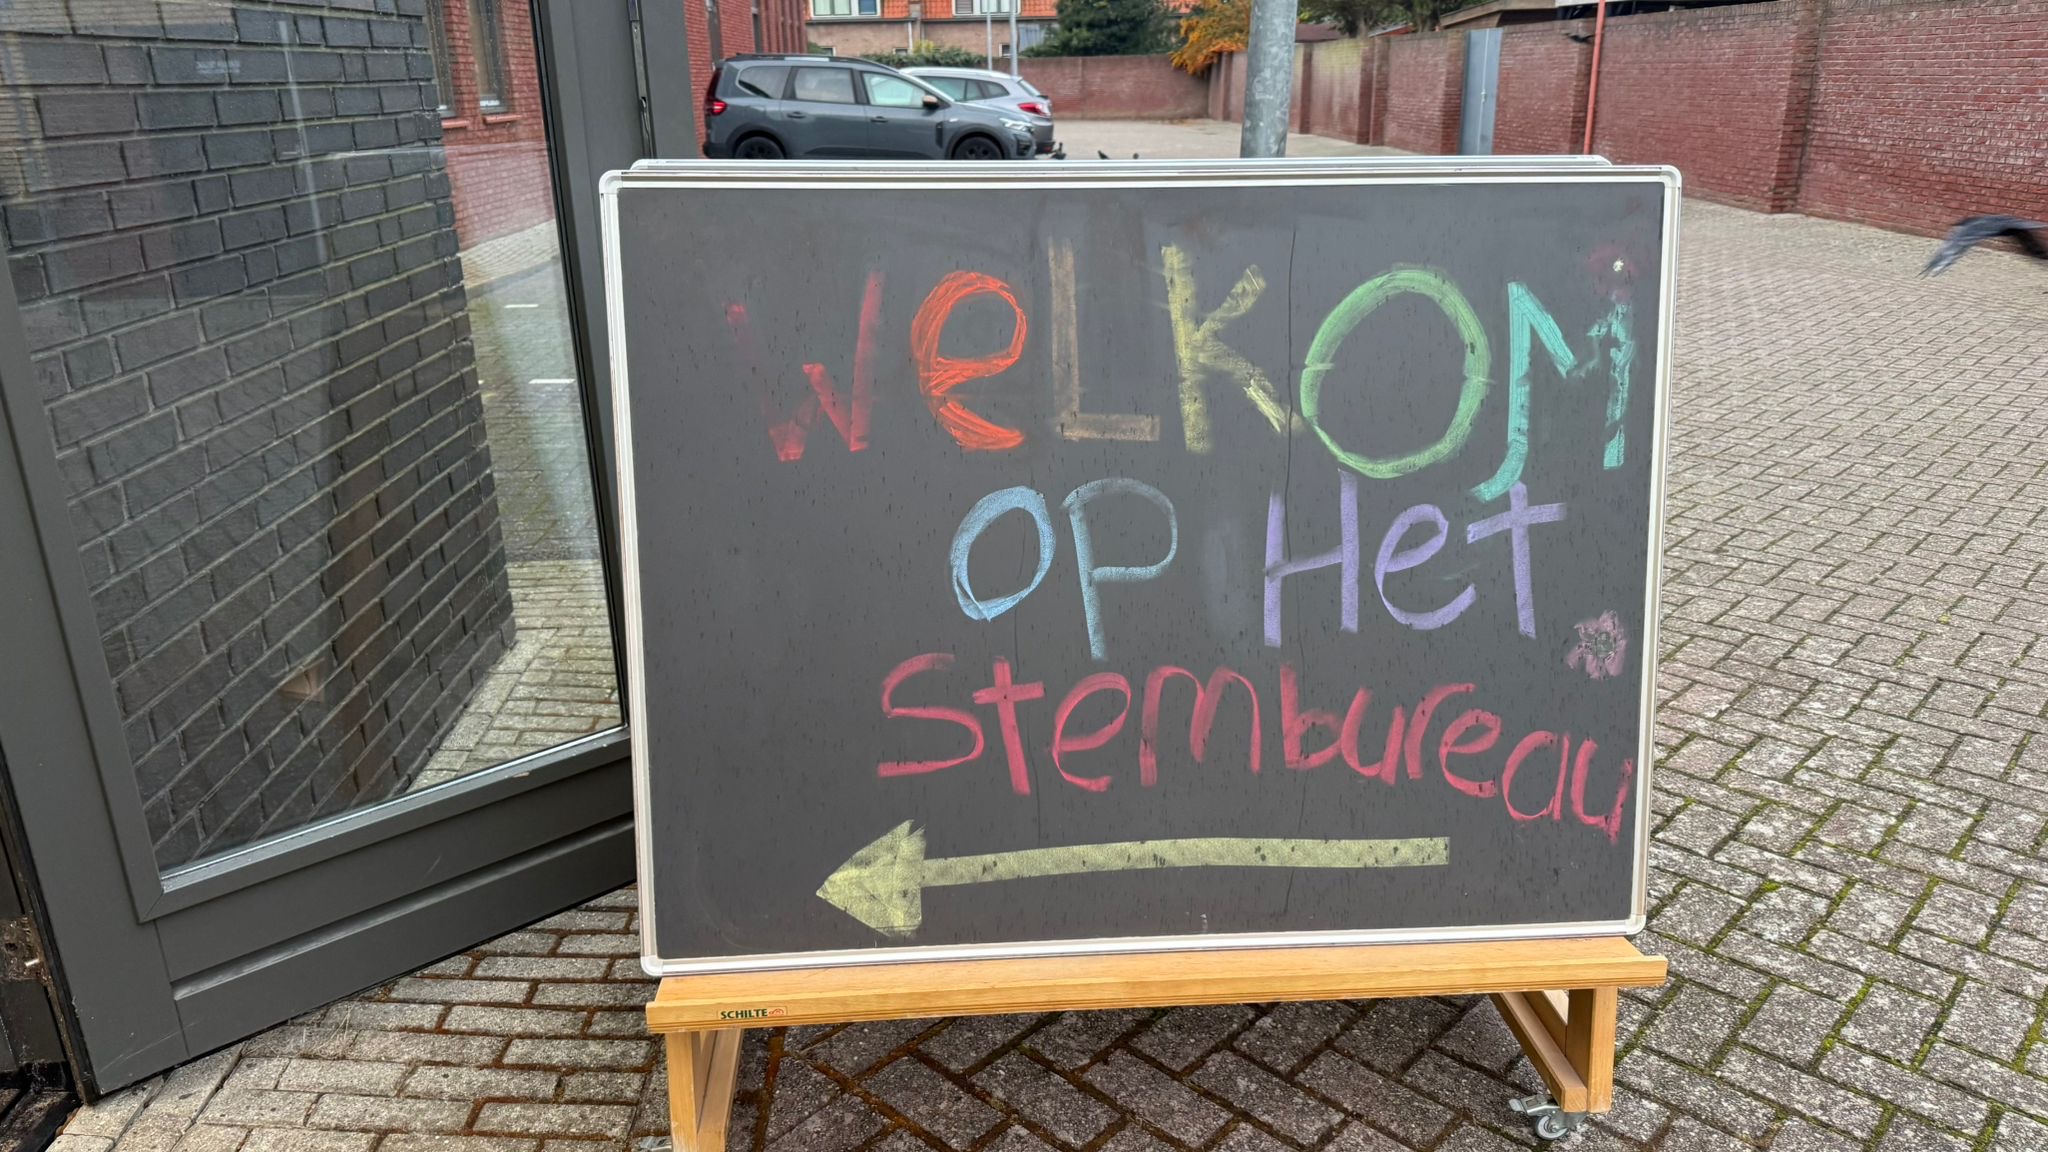 WeLKOM
OP Het
Stembureau
SCHILTE